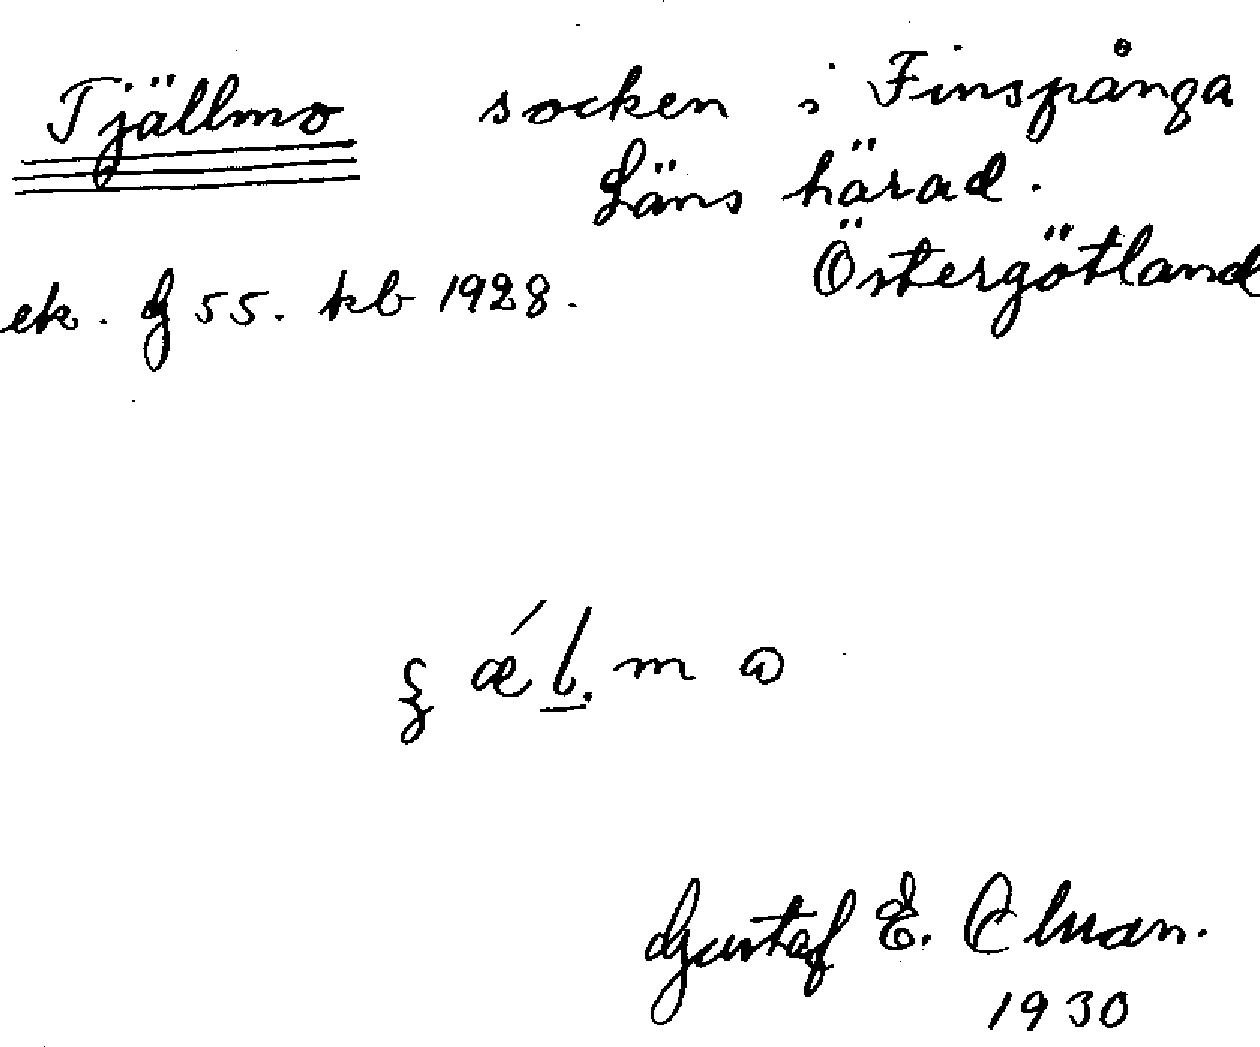 Tjällmo socken i Finspånga
Läns härad.
Östergötland
ek. G 55. kb 1928.
Gustaf E.
1930